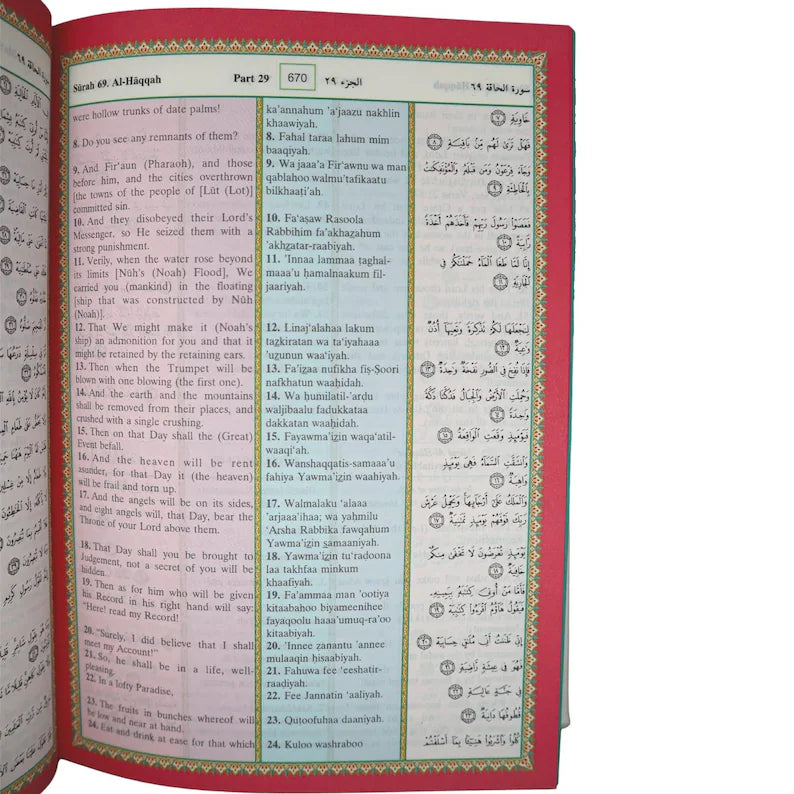 Sûrah 69. Al-Hâqqah
Part 29
670
الجزء ٢٩
سورة الحاقة ٦٩
were hollow trunks of date palms!
8. Do you see any remnants of them?
9. And Fir‘aun (Pharaoh), and those
before him, and the cities overthrown
[the towns of the people of [Lût (Lot)]
committed sin.
10. And they disobeyed their Lord's
Messenger, so He seized them with a
strong punishment.
11. Verily, when the water rose beyond
its limits [Nûh's (Noah) Flood], We
carried you (mankind) in the floating
[ship that was constructed by Nûh
(Noah)].
12. That We might make it (Noah's
ship) an admonition for you and that it
might be retained by the retaining ears.
13. Then when the Trumpet will be
blown with one blowing (the first one).
14. And the earth and the mountains
shall be removed from their places, and
crushed with a single crushing.
15. Then on that Day shall the (Great)
Event befall.
16. And the heaven will be rent
asunder, for that Day it (the heaven)
will be frail and torn up.
17. And the angels will be on its sides,
and eight angels will, that Day, bear the
Throne of your Lord above them.
18. That Day shall you be brought to
Judgement, not a secret of you will be
hidden.
19. Then as for him who will be given
his Record in his right hand will say:
"Here! read my Record!
20. "Surely, I did believe that I shall
meet my Account!"
21. So, he shall be in a life, well-
pleasing.
22. In a lofty Paradise,
23. The fruits in bunches whereof will
be low and near at hand.
24. Eat and drink at ease for that which
ka'annahum 'a‘jaazu nakhlin
khaawiyah.
8. Fahal taraa lahum mim
baaqiyah.
9. Wa jaaa'a Fir‘awnu wa man
qablahoo walmu'tafikaatu
bilkhaaṭi'ah.
10. Fa‘aṣaw Rasoola
Rabbihim fa'akhazahum
'akhzatar-raabiyah.
11. 'Innaa lammaa ṭaghal-
maaa'u ḥamalnaakum fil-
jaariyah.
12. Linaj‘alahaa lakum
tazkiratan wa ta‘iyahaaa
'uzunun waa‘iyah.
13. Fa'izaa nufikha fiṣ-Ṣoori
nafkhatun waaḥidah.
14. Wa ḥumilatil-'arḍu
waljibaalu fadukkataa
dakkatan waaḥidah.
15. Fayawma'izin waqa‘atil-
waaqi‘ah.
16. Wanshaqqatis-samaaa'u
fahiya Yawma'izin waahiyah.
17. Walmalaku ‘alaaa
'arjaaa'ihaa; wa yaḥmilu
‘Arsha Rabbika fawqahum
Yawma'izin samaaniyah.
18. Yawma'izin tu‘raḍoona
laa takhfaa minkum
khaafiyah.
19. Fa'ammaa man 'ootiya
kitaabahoo biyameenihee
fayaqoolu haaa'umuq-ra'oo
kitaabiyah.
20. 'Innee ẓanantu 'annee
mulaaqin ḥisaabiyah.
21. Fahuwa fee ‘eeshatir-
raaḍiyah.
22. Fee Jannatin ‘aaliyah.
23. Quṭoofuhaa daaniyah.
24. Kuloo washraboo
خَاوِيَةٍ ٧
فَهَلْ تَرَىٰ لَهُم مِّنۢ بَاقِيَةٍ ٨
وَجَآءَ فِرْعَوْنُ وَمَن قَبْلَهُۥ وَٱلْمُؤْتَفِكَـٰتُ
بِٱلْخَاطِئَةِ ٩
فَعَصَوْا۟ رَسُولَ رَبِّهِمْ فَأَخَذَهُمْ أَخْذَةً
رَّابِيَةً ١٠
إِنَّا لَمَّا طَغَا ٱلْمَآءُ حَمَلْنَـٰكُمْ فِى
ٱلْجَارِيَةِ ١١
لِنَجْعَلَهَا لَكُمْ تَذْكِرَةً وَتَعِيَهَآ أُذُنٌ
وَٰعِيَةٌ ١٢
فَإِذَا نُفِخَ فِى ٱلصُّورِ نَفْخَةٌ وَٰحِدَةٌ ١٣
وَحُمِلَتِ ٱلْأَرْضُ وَٱلْجِبَالُ فَدُكَّتَا دَكَّةً
وَٰحِدَةً ١٤
فَيَوْمَئِذٍ وَقَعَتِ ٱلْوَاقِعَةُ ١٥
وَٱنشَقَّتِ ٱلسَّمَآءُ فَهِىَ يَوْمَئِذٍ
وَاهِيَةٌ ١٦
وَٱلْمَلَكُ عَلَىٰٓ أَرْجَآئِهَا وَيَحْمِلُ عَرْشَ
رَبِّكَ فَوْقَهُمْ يَوْمَئِذٍ ثَمَـٰنِيَةٌ ١٧
يَوْمَئِذٍ تُعْرَضُونَ لَا تَخْفَىٰ مِنكُمْ
خَافِيَةٌ ١٨
فَأَمَّا مَنْ أُوتِىَ كِتَـٰبَهُۥ بِيَمِينِهِۦ
فَيَقُولُ هَآؤُمُ ٱقْرَءُوا۟ كِتَـٰبِيَهْ ١٩
إِنِّى ظَنَنتُ أَنِّى مُلَـٰقٍ حِسَابِيَهْ ٢٠
فَهُوَ فِى عِيشَةٍ رَّاضِيَةٍ ٢١
فِى جَنَّةٍ عَالِيَةٍ ٢٢
قُطُوفُهَا دَانِيَةٌ ٢٣
كُلُوا۟ وَٱشْرَبُوا۟ هَنِيٓـًٔۢا بِمَآ أَسْلَفْتُمْ